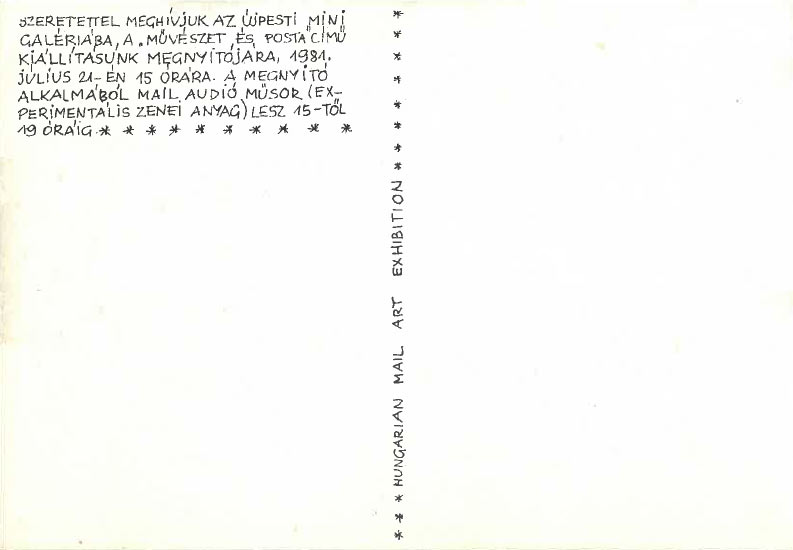 SZERETETTEL MEGHÍVJUK AZ ÚJPESTI "MINI
GALÉRIÁBA, A "MŰVÉSZET ÉS POSTA" CÍMŰ
KIÁLLÍTÁSUNK MEGNYITÓJÁRA, 1981.
JÚLIUS 21-ÉN 15 ÓRÁRA. A MEGNYITÓ
ALKALMÁBÓL MAIL AUDIÓ MŰSOR (EX-
PERIMENTÁLIS ZENEI ANYAG) LESZ 15-TŐL
19 ÓRÁIG * * * * * * * * * *
* * * HUNGARIAN MAIL ART EXHIBITION * * * * * * * *